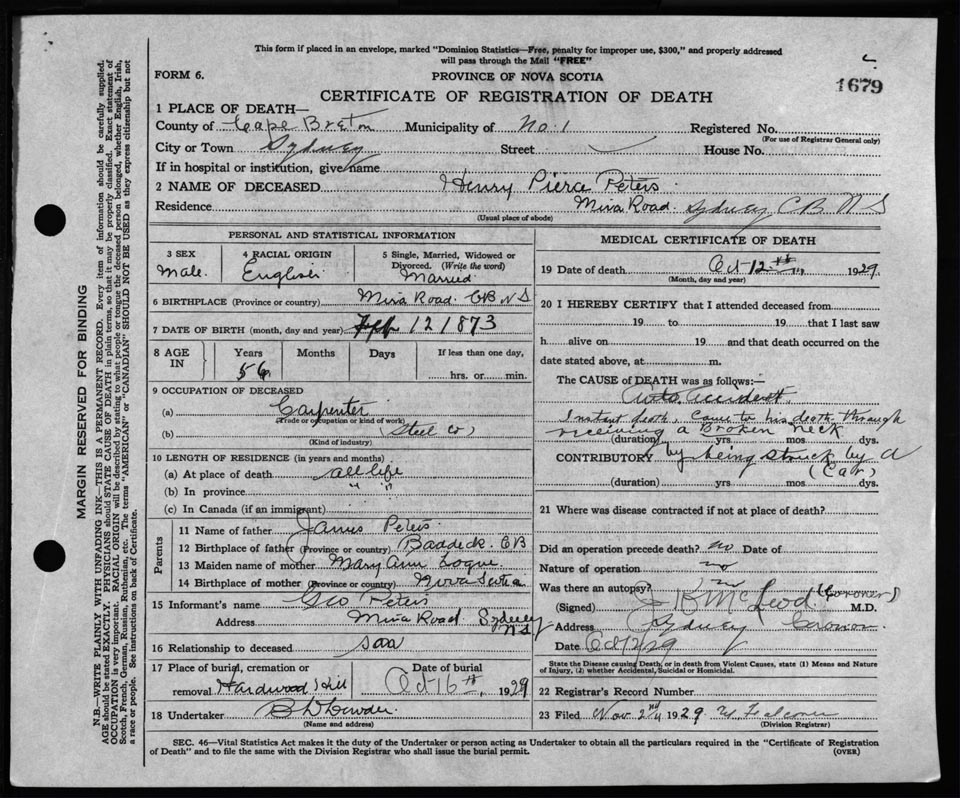 This form if placed in an envelope, marked "Dominion Statistics—Free, penalty for improper use, $300," and properly addressed
will pass through the Mail "FREE"
FORM 6.
PROVINCE OF NOVA SCOTIA
1679
CERTIFICATE OF REGISTRATION OF DEATH
1 PLACE OF DEATH—
County of Cape Breton Municipality of No. 1 Registered No.
(For use of Registrar General only)
City or Town Sydney Street House No.
If in hospital or institution, give name
2 NAME OF DECEASED Henry Pierce Peters
Residence Mira Road. Sydney CB NS
(Usual place of abode)
PERSONAL AND STATISTICAL INFORMATION
3 SEX Male.
4 RACIAL ORIGIN English
5 Single, Married, Widowed or
Divorced. (Write the word)
Married
6 BIRTHPLACE (Province or country) Mira Road. CB NS
7 DATE OF BIRTH (month, day and year) 12 1873
8 AGE IN
Years Months Days If less than one day,
56 hrs. or min.
9 OCCUPATION OF DECEASED
(a) Carpenter
(Trade or occupation or kind of work)
(b) (Steel Co)
(Kind of industry)
10 LENGTH OF RESIDENCE (in years and months)
(a) At place of death all life
(b) In province " "
(c) In Canada (if an immigrant)
Parents
11 Name of father James Peters
12 Birthplace of father (Province or country) Baddeck. CB
13 Maiden name of mother Mary Ann Logue
14 Birthplace of mother (Province or country) Nova Scotia
15 Informant's name Geo Peters
Address Mira Road. Sydney
NS
16 Relationship to deceased son
17 Place of burial, cremation or
removal Hardwood Hill
Date of burial
Oct 16th, 1929
18 Undertaker
(Name and address)
MEDICAL CERTIFICATE OF DEATH
19 Date of death Oct 12th, 1929
(Month, day and year)
20 I HEREBY CERTIFY that I attended deceased from
19 to 19 that I last saw
h alive on 19 and that death occurred on the
date stated above, at m.
The CAUSE of DEATH was as follows:—
Auto. Accident
Instant death, Came to his death through
receiving a Broken Neck
(duration) yrs. mos. dys.
CONTRIBUTORY by being struck by a
(Car)
(duration) yrs. mos. dys.
21 Where was disease contracted if not at place of death?
Did an operation precede death? no Date of
Nature of operation no
Was there an autopsy? no
(Signed) J B McLeod (Coroner) M.D.
Address Sydney
Date Oct 12/29
State the Disease causing Death, or in death from Violent Causes, state (1) Means and Nature
of Injury, (2) whether Accidental, Suicidal or Homicidal.
22 Registrar's Record Number
23 Filed Nov. 2nd, 1929
(Division Registrar)
SEC. 46—Vital Statistics Act makes it the duty of the Undertaker or person acting as Undertaker to obtain all the particulars required in the "Certificate of Registration
of Death" and to file the same with the Division Registrar who shall issue the burial permit.
(OVER)
MARGIN RESERVED FOR BINDING
N.B.—WRITE PLAINLY WITH UNFADING INK—THIS IS A PERMANENT RECORD. Every item of information should be carefully supplied.
AGE should be stated EXACTLY. PHYSICIANS should STATE CAUSE OF DEATH in plain terms, so that it may be properly classified. Exact statement of
OCCUPATION is very important. RACIAL ORIGIN will be described by stating to what people or tongue the deceased person belonged, whether English, Irish,
Scotch, French, German, Russian, Ruthenian, etc. The terms "AMERICAN" or "CANADIAN" SHOULD NOT BE USED as they express citizenship but not
a race or people. See instructions on back of Certificate.